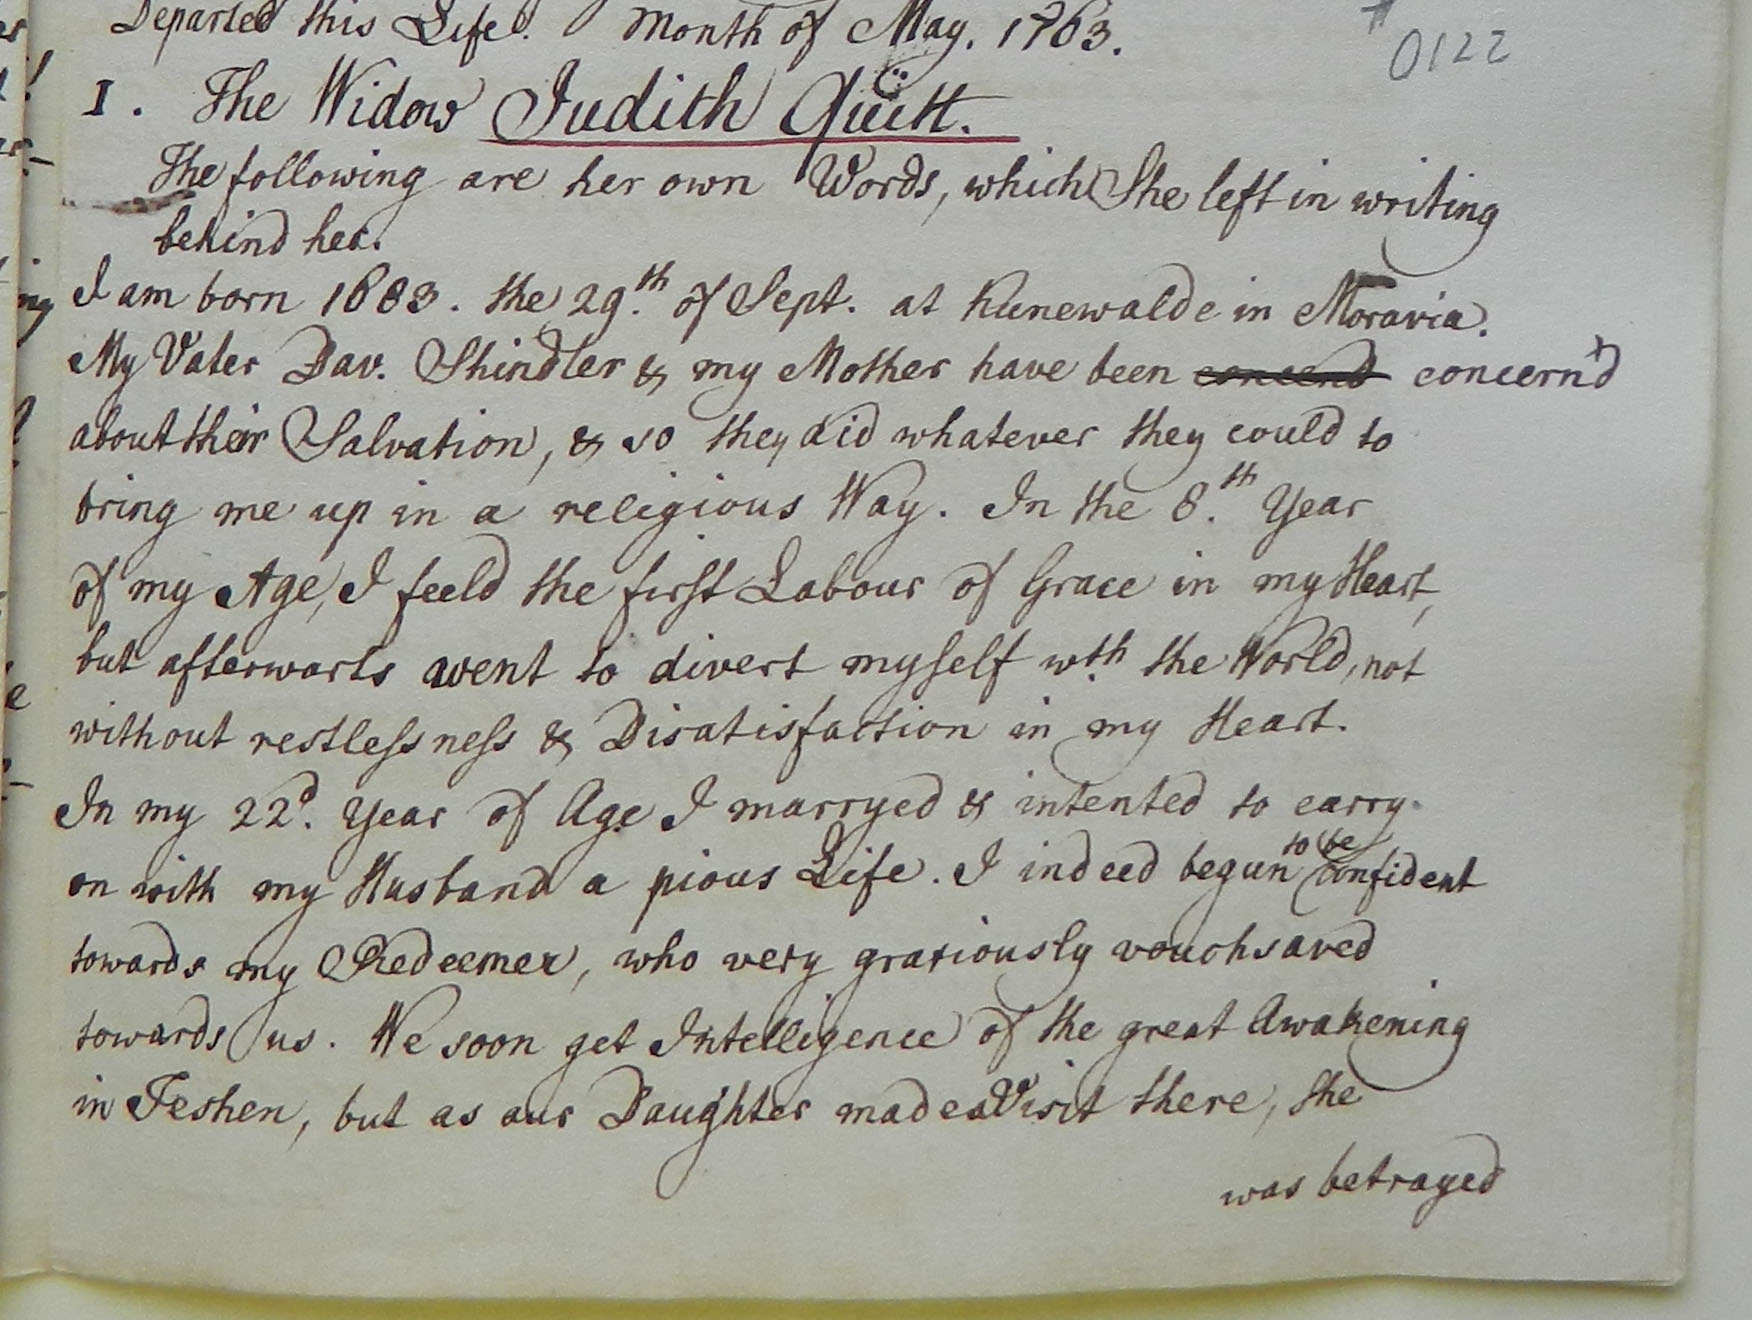 Departed this Life. Month of May. 1763.
0122
I. The Widow Judith Quitt.
The following are her own Words, which She left in writing
behind her.
I am born 1683. the 29.th of Sept. at Kunewalde in Moravia.
My Vater Dav. Shindler & my Mother have been concend concern'd
about their Salvation, & so they did whatever they could to
bring me up in a religious Way. In the 8.th Year
of my Age, I feeld the first Labour of Grace in my Heart,
but afterwarts went to divert myself wth. the World, not
without restlessness & Disatisfaction in my Heart.
In my 22d. Year of Age I marryed & intented to carry
on with my Husband a pious Life. I indeed begun to be confident
towards my Redeemer, who very gratiously vouchsaved
towards us. We soon get Intelligence of the great Awakening
in Teshen, but as our Daughter made a Visit there, she
was betrayed